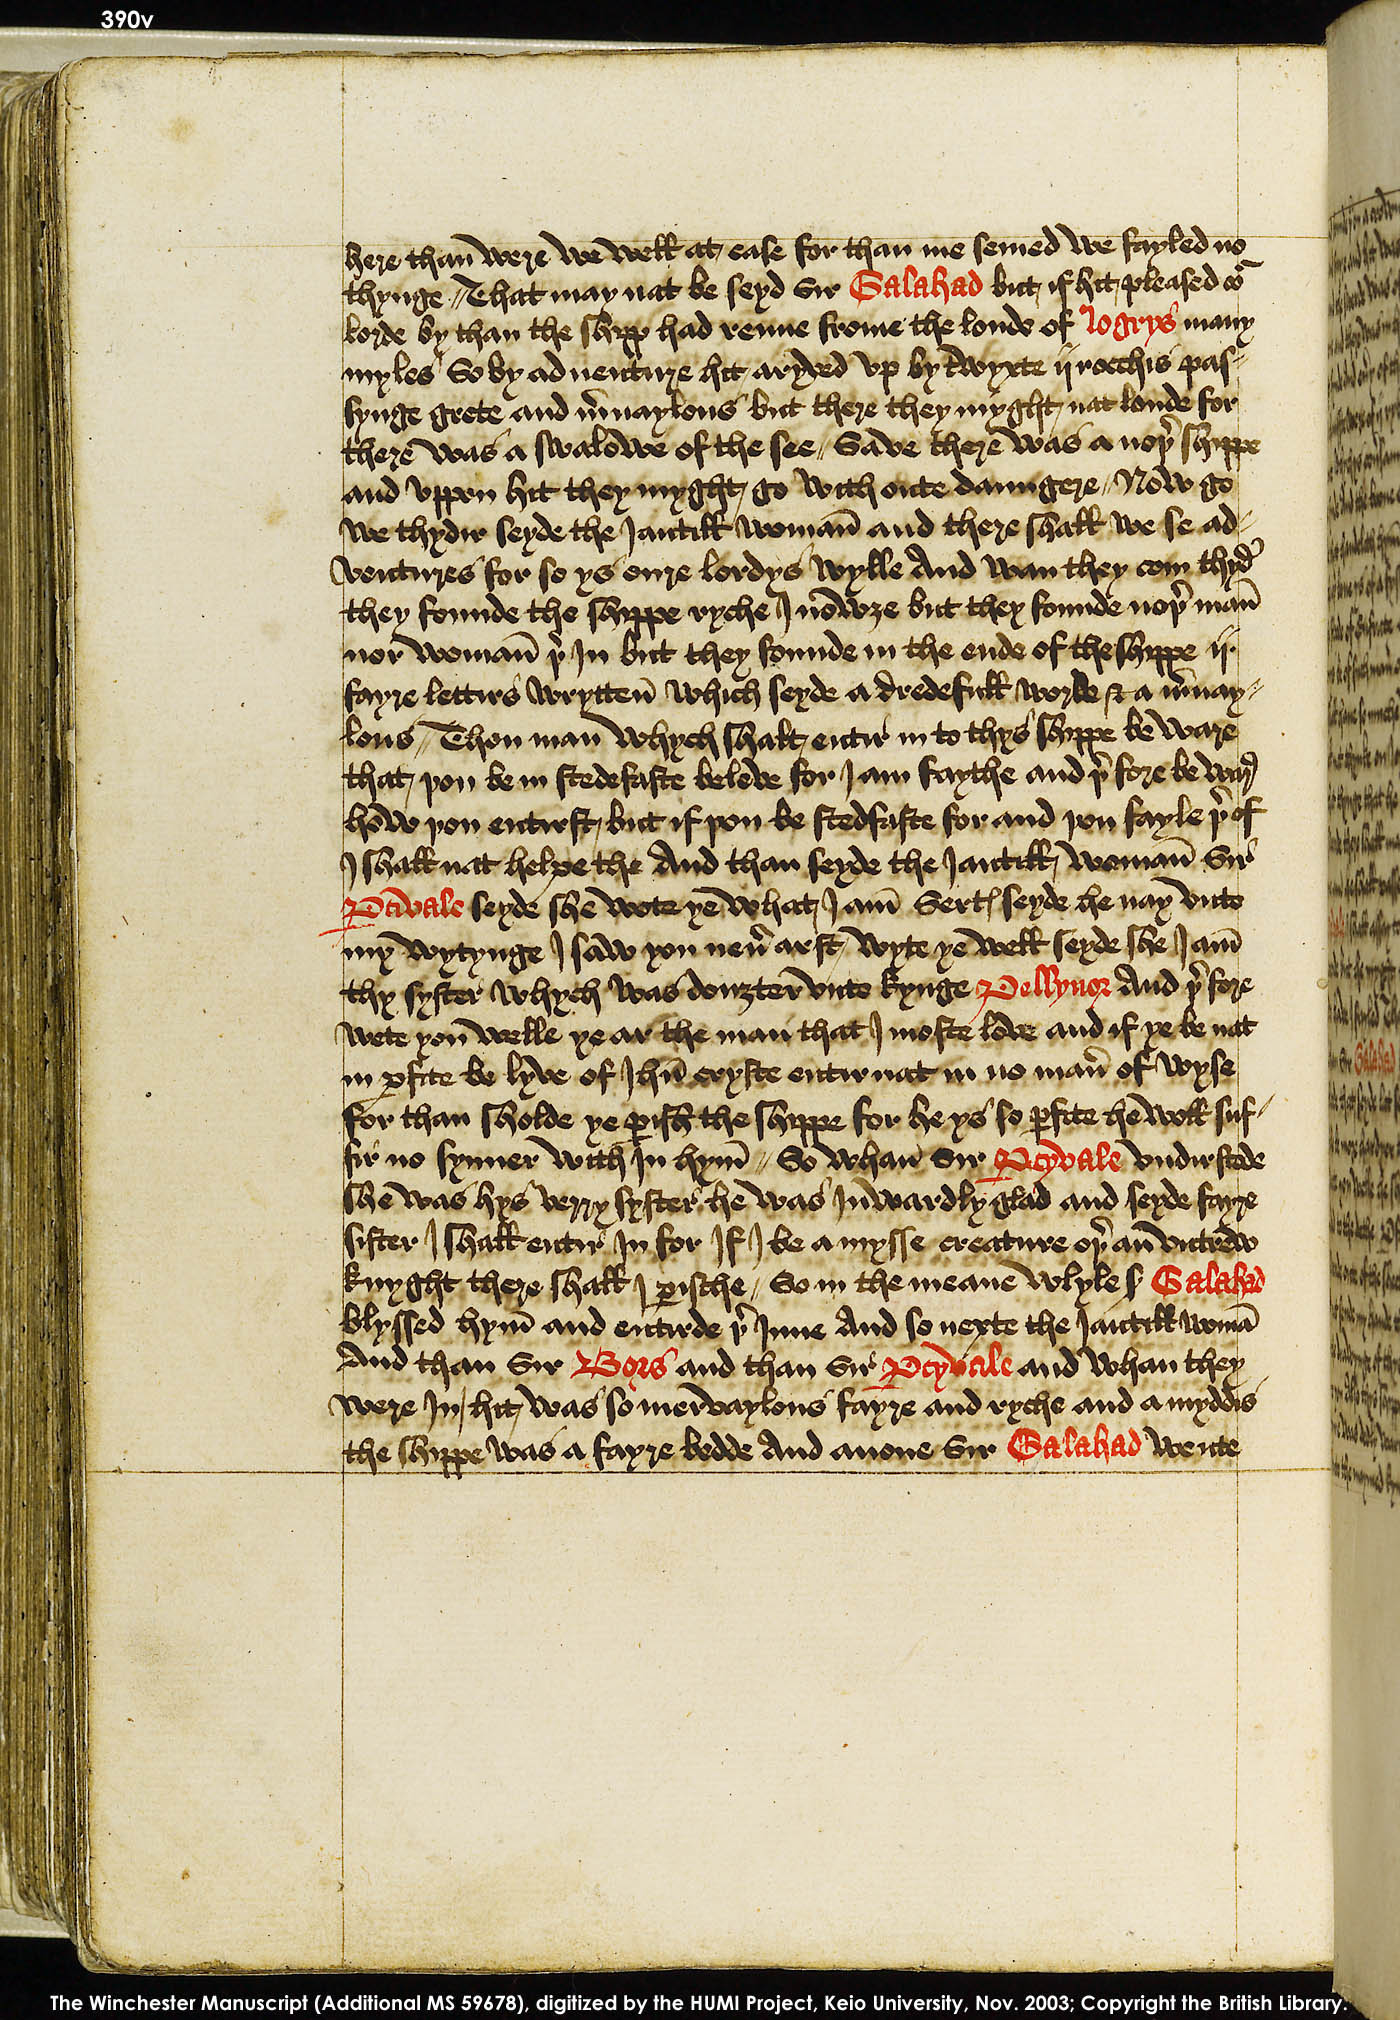 390v
here than̄ were we well at ease for than me semed we fayled no
thynge // That may nat be seyd Sir Galahad but if hit pleased oʳ
lorde by than the shipp had renne frome the londe of logrys many
myles So by aduenture hit aryved vp bytwyxte ij rocchis pas-
synge grete and m̄uaylous but there they myght nat londe for
there was a swalowe of the see // Save there was a noþʳ shippe
and vppon hit they myght go with oute daungere // Now go
we thydir seyde the Jantill woman̄ and there shall we se ad-
ventures for so ys oure lordys wylle And wan they com thydʳ
they founde the shippe ryche J nowȝe but they founde noþʳ man̄
nor woman̄ þʳ Jn but they founde in the ende of the shippe ij
fayre lettirs wrytten̄ which seyde a dredefull worde & a m̄uay-
lous // Thou man whych shalt entir in to thys shippe be ware
that þou be in stedefaste beleve for J am faythe and þʳ fore be warͤ
how þou entirst but if þou be stedfaste for and þou fayle þʳ of
J shall nat helpe the And than seyde the Jantill woman̄ Sir
P̱civale seyde she wote ye what J am̄ Sertͤ seyde he nay vnto
my wytynge J saw you neūʳ arst Wyte ye well seyde she J am̄
thy syster whych was douȝter vnto kynge Pellynor And þʳ fore
wete you welle ye ar the man that J moste love and if ye be nat
in ꝑfite be lyve of Jhū cryste entir nat in no man̄ʳ of wyse
for than sholde ye ꝑish the shippe for he ys so ꝑfite he woll suf-
fir no synner with Jn hym̄ // So whan̄ Sir P̱cyvale vndirstode
she was hys verry syster he was Jnwardly glad and seyde fayre
sister J shall entir Jn for Jf J be a mysse creature oþʳ an̄ vntrew
knyght there shall J ꝑische // So in the meane whyle Sʳ Galahad
blyssed hym̄ and entirde þʳ Jnne And so nexte the Jantill womā
And than Sir Bors and than Sir P̱cyvale and whan they
were Jn hit was so mervaylous fayre and ryche and amyddis
the shippe was a fayre bedde And anone Sir Galahad wente
Galahad
The Winchester Manuscript (Additional MS 59678), digitized by the HUMI Project, Keio University, Nov. 2003; Copyright the British Library.